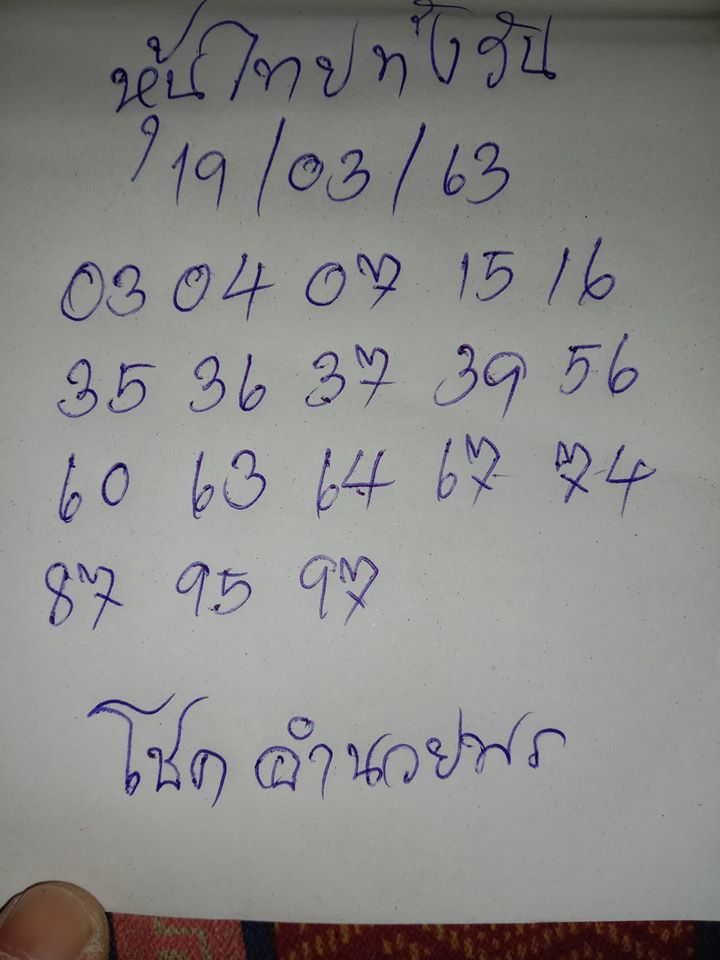 หุ้นไทยทั้งวัน
19/03/63
03 04 07 15 16
35 36 37 39 56
60 63 64 67 74
87 95 97
โชคอำนวยพร